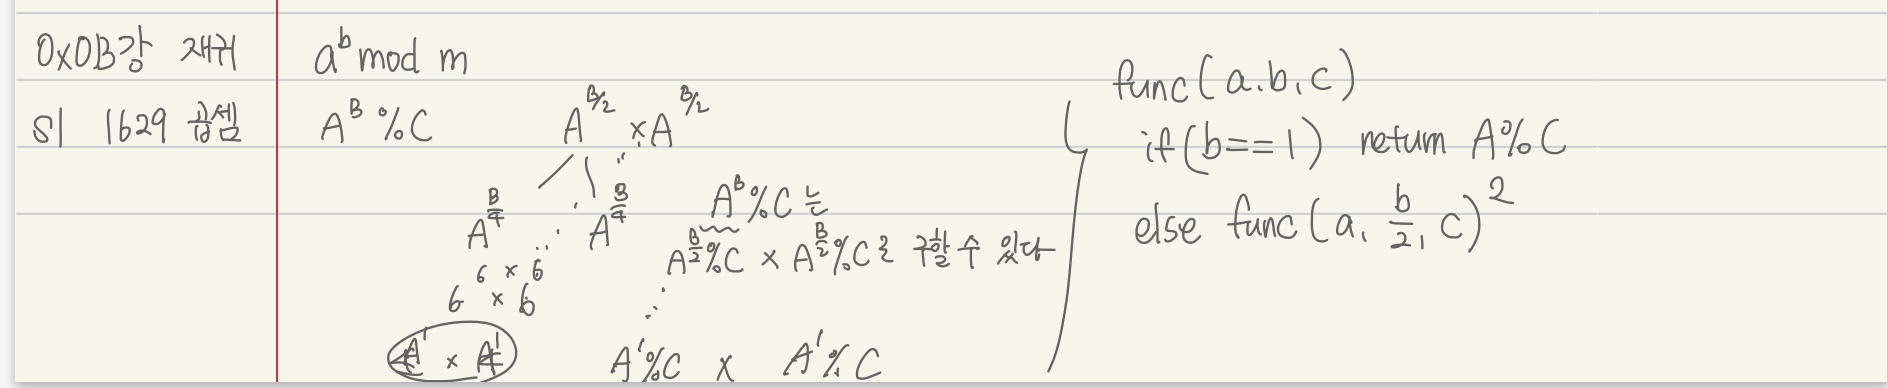 0x0B강 재귀
S1 1629 곱셈
a^b mod m
A^B % C
A^{B/2} × A^{B/2}
A^{B/4} A^{B/4}
6 × 6
6 × 6
A^1 × A^1
A^B % C 는
A^{B/2} % C × A^{B/2} % C로 구할 수 있다
A^1 % C × A^1 % C
func(a, b, c)
if(b==1) return A%C
else func(a, b/2, c)^2